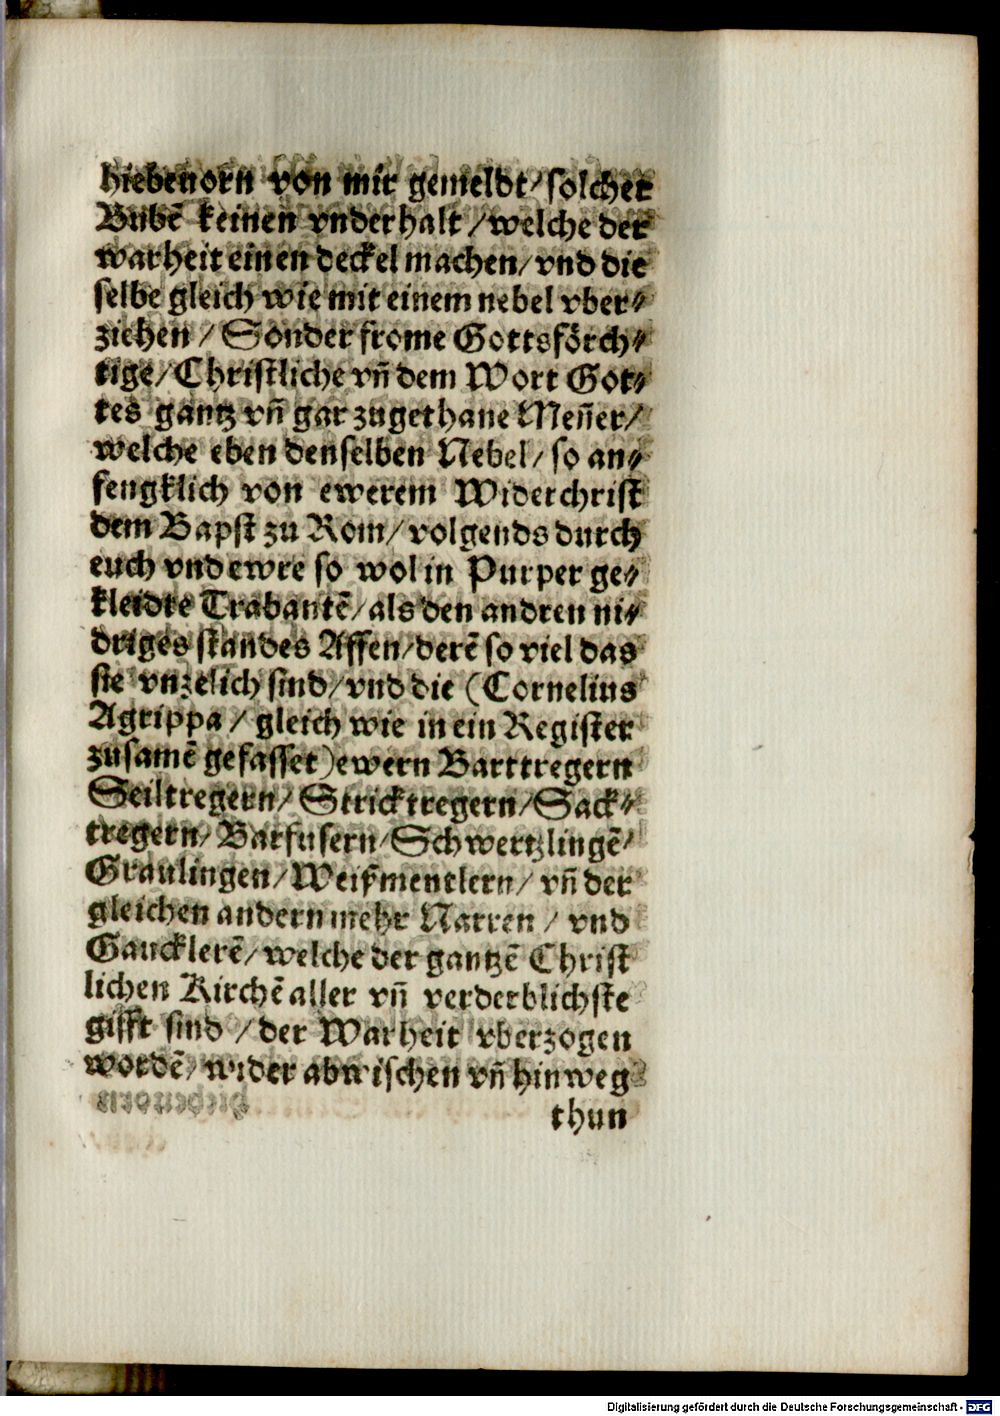 hiebeuorn von mir gemeldt / solcher
Bubē keinen vnderhalt / welche der
warheit einen deckel machen / vnd die
selbe gleich wie mit einem nebel vber⸗
ziehen / Sonder frome Gottsförch⸗
tige / Christliche vn̄ dem Wort Got⸗
tes gantz vn̄ gar zugethane Men̄er /
welche eben denselben Nebel / so an⸗
fengklich von ewerem Widerchrist
dem Bapst zu Rom / volgends durch
euch vnd ewre so wol in Purper ge⸗
kleidte Trabantē / als den andren ni⸗
driges standes Affen / derē so viel das
sie vnzelich sind / vnd die (Cornelius
Agrippa / gleich wie in ein Register
zusamē gefasset) ewern Barttregern
Seiltregern / Stricktregern / Sack⸗
tregern / Barfusern / Schwertzlingē /
Graulingen / Weiſsmentlern / vn̄ der
gleichen andern mehr Narren / vnd
Gaucklerē / welche der gantzē Christ
lichen Kirchē aller vn̄ verderblichste
gifft sind / der Warheit vberzogen
wordē / wider abwischen vn̄ hinweg
thun
Digitalisierung gefördert durch die Deutsche Forschungsgemeinschaft - DFG